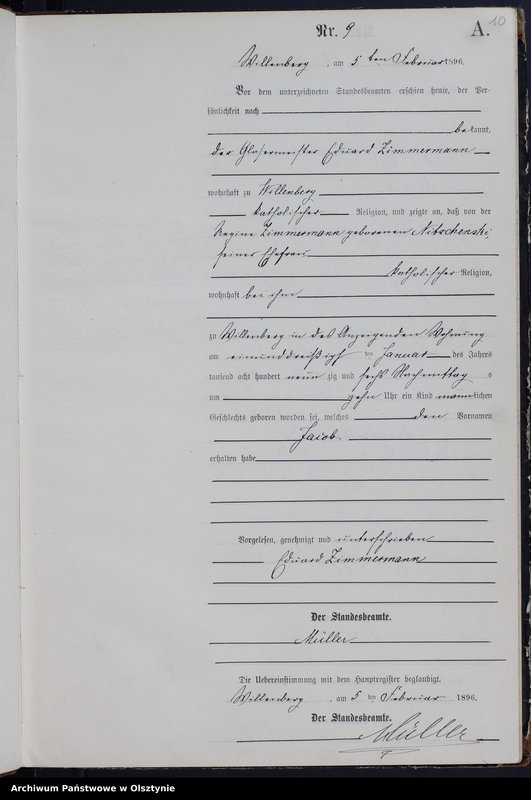 10
Nr. 9 A.
Willenberg, am 5 ten Februar 1896.
Vor dem unterzeichneten Standesbeamten erschien heute, der Per-
sönlichkeit nach
bekannt,
der Glasermeister Eduard Zimmermann
wohnhaft zu Willenberg
katholischer Religion, und zeigte an, daß von der
Regine Zimmermann geborenen
seiner Ehefrau
katholischer Religion,
wohnhaft bei ihm
zu Willenberg in des Anzeigenden Wohnung
am einunddreißigst ten Januar des Jahres
tausend acht hundert neun zig und sechs Nachmittag s
um zehn Uhr ein Kind männlichen
Geschlechts geboren worden sei, welches den Vornamen
Jacob
erhalten habe
Vorgelesen, genehmigt und unterschrieben
Eduard Zimmermann
Der Standesbeamte.
Müller
Die Uebereinstimmung mit dem Hauptregister beglaubigt.
Willenberg, am 5 ten Februar 1896.
Der Standesbeamte.
Müller
Archiwum Państwowe w Olsztynie